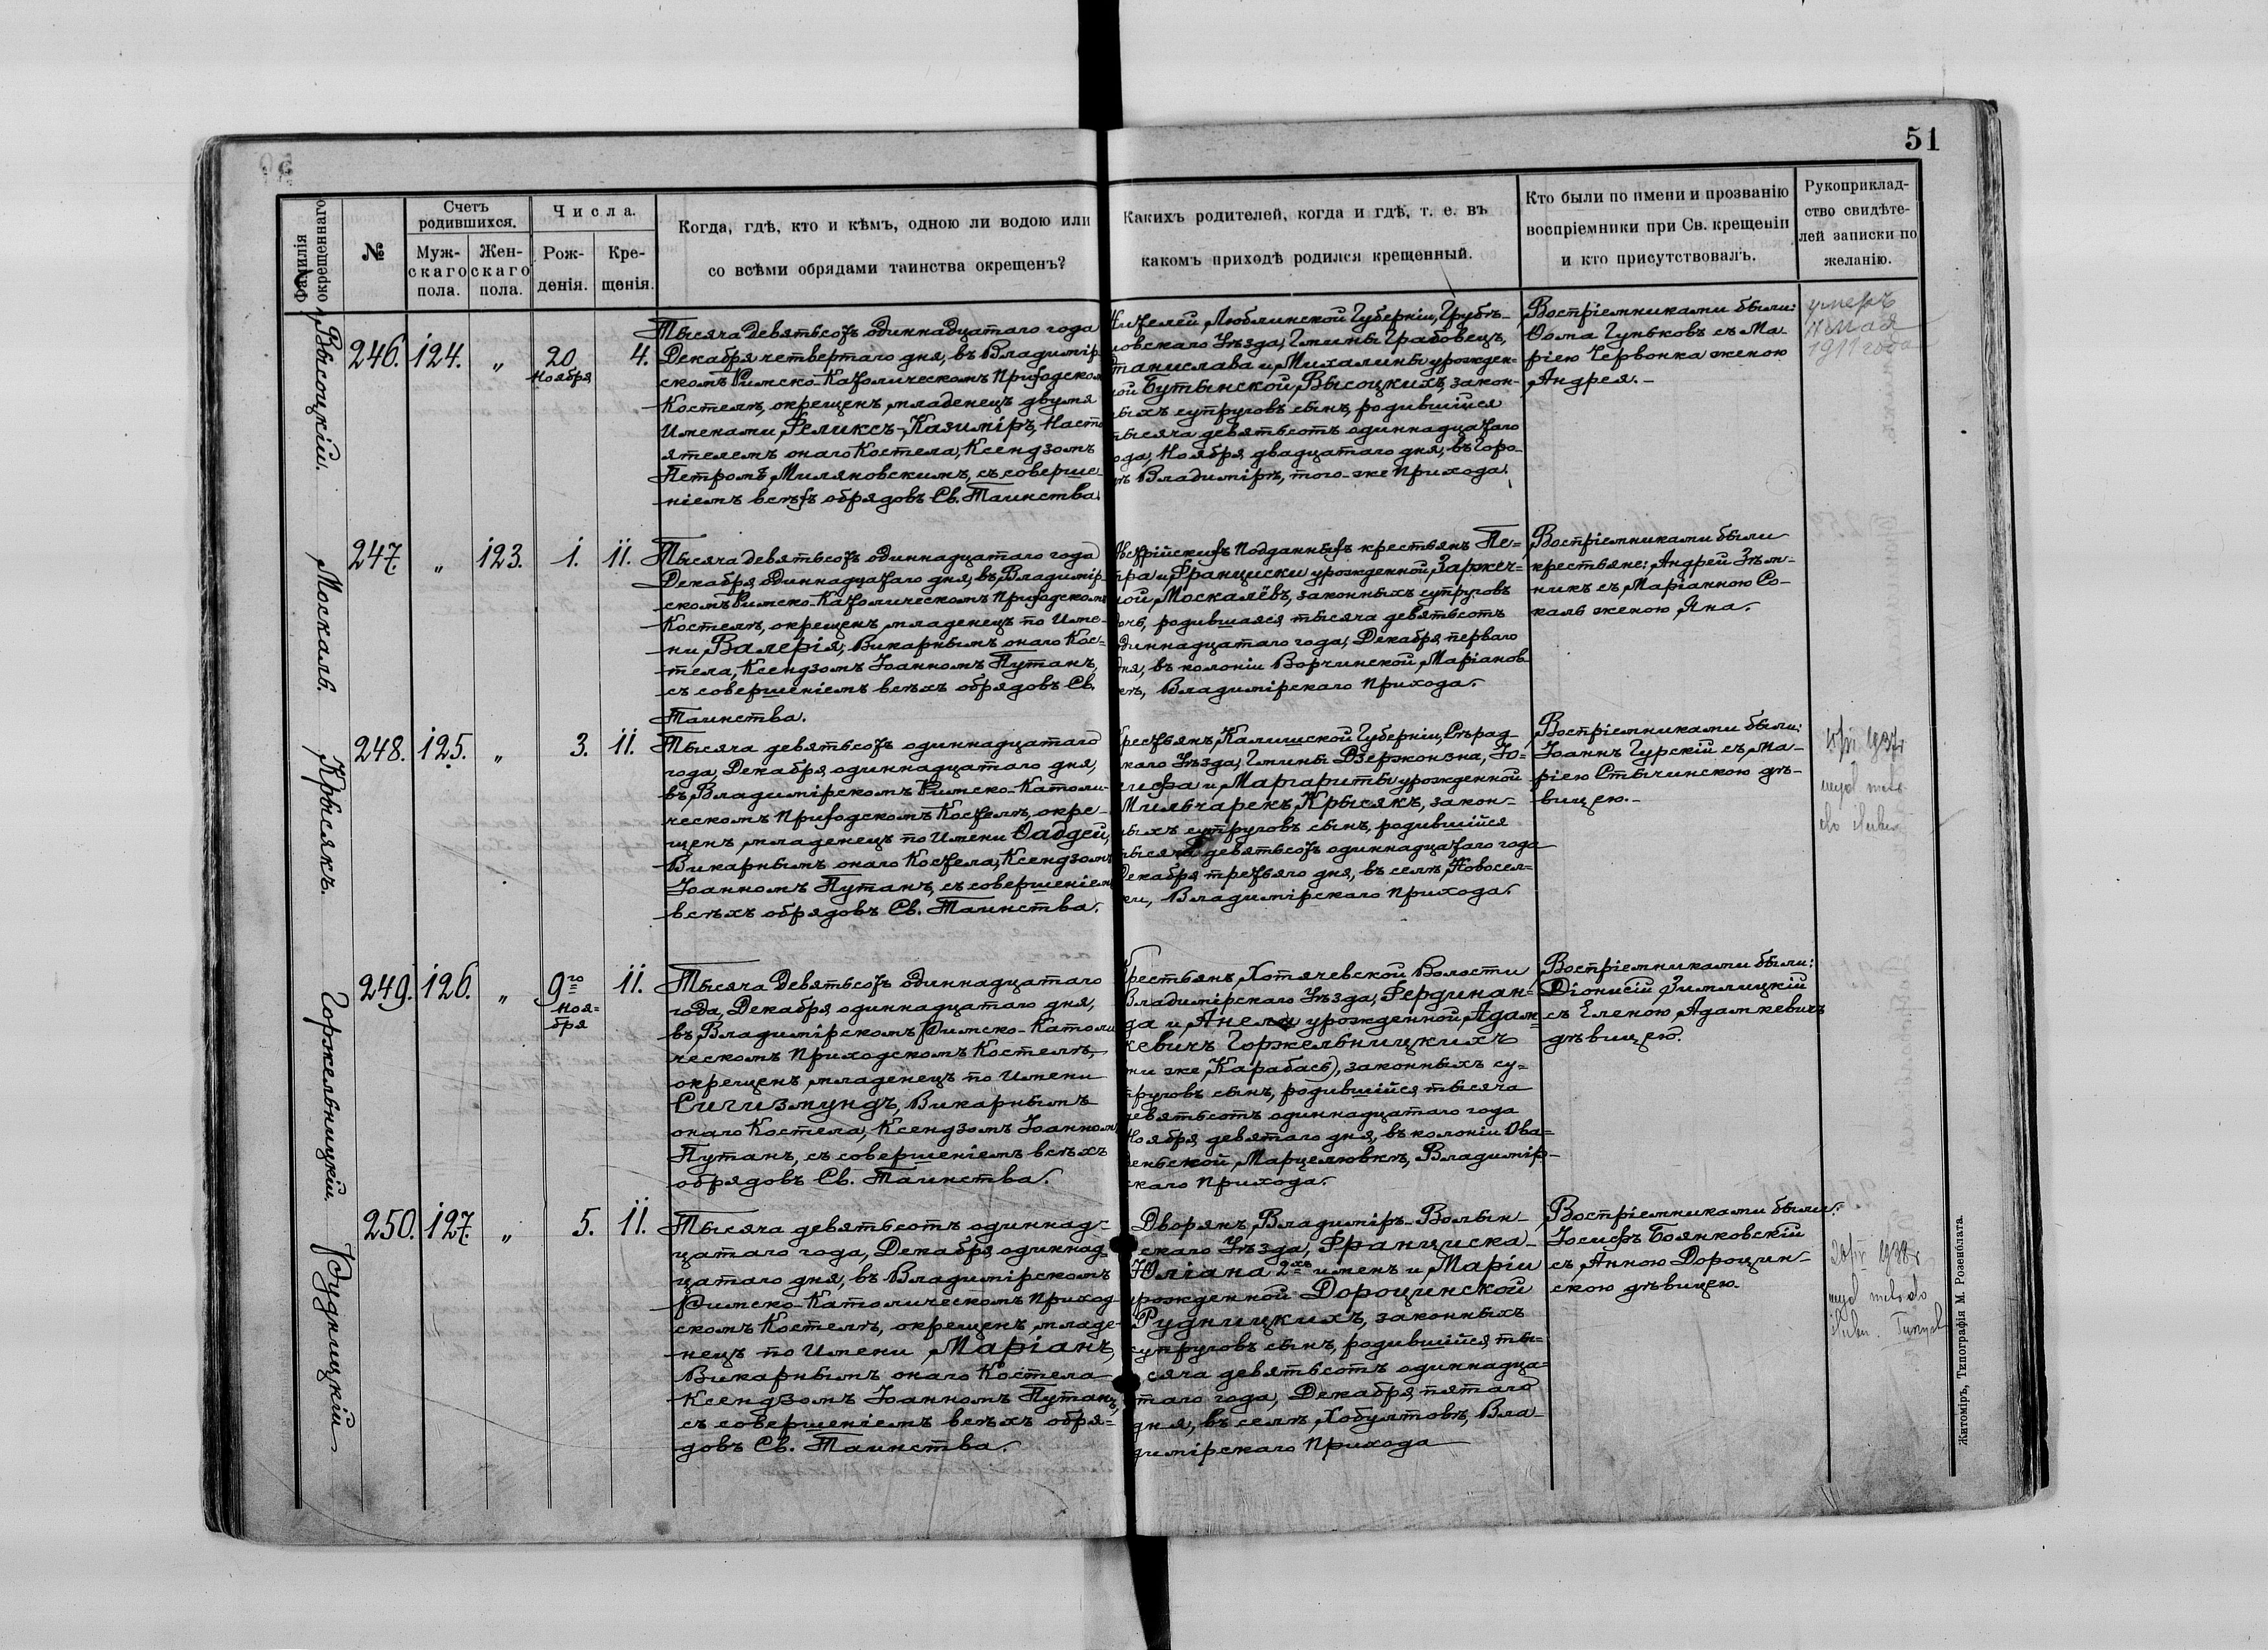 51
Фамилія окрещеннаго
№
Счетъ родившихся.
Муж-скаго пола.
Жен-скаго пола.
Числа.
Рож-денія.
Кре-щенія.
Когда, гдѣ, кто и кѣмъ, одною ли водою или
со всѣми обрядами таинства окрещенъ?
Какихъ родителей, когда и гдѣ, т. е. въ
какомъ приходѣ родился крещенный.
Кто были по имени и прозванію
воспріемники при Св. крещеніи
и кто присутствовалъ.
Рукоприклад-
ство свидѣте-
лей записки по
желанію.
Высоцкій.
246. 124. „ 20 Ноября 4.
Тысяча девятьсотъ одиннадцатаго года
Декабря четвертаго дня, въ Владимір-
скомъ Римско-Католическомъ Приходском
Костелѣ, окрещенъ младенецъ двумя
Именами Феликсъ-Казиміръ, Насто
ятелемъ онаго Костела, Ксендзомъ
Петромъ Миляновскимъ, съ соверше-
ніемъ всѣхъ обрядовъ Св. Таинства.
жителей Люблинской Губерніи, Грубѣ-
шовскаго Уѣзда, Гмины Грабовецъ,
Станислава и Михалины урожден-
ной Бутынской Высоцкихъ, закон-
ныхъ супруговъ сынъ, родившійся
тысяча девятьсотъ одиннадцатаго
года, Ноября двадцатаго дня, въ Горо-
дѣ Владимірѣ, того-же Прихода.
Востріемниками были:
Ѳома Гуньковъ съ Ма-
ріею Червонка женою
Андрея.-
умеръ
мая
1911 года
Москаль.
247. „ 123. 1. 11.
Тысяча девятьсотъ одиннадцатаго года
Декабря одиннадцатаго дня, въ Владимір-
скомъ Римско-Католическомъ Приходскомъ
Костелѣ, окрещенъ младенецъ по Име-
ни Валерія, Викарнымъ онаго Кос-
тела, Ксендзомъ Іоанномъ Путанъ,
съ совершеніемъ всѣхъ обрядовъ Св.
Таинства.
Австрійскихъ Подданныхъ крестьянъ Пе-
тра и Франциски урожденной Заржеч-
ной Москалёвъ, законныхъ супруговъ
дочь, родившаяся тысяча девятьсотъ
одиннадцатаго года, Декабря перваго
дня, въ колоніи Ворчинской Маріанов-
кѣ, Владимірскаго Прихода.
Востріемниками были
крестьяне: Андрей Зѣм-
никъ съ Маріанною Со-
каль женою Яна.
Крысякъ.
248. 125. „ 3. 11.
Тысяча девятьсотъ одиннадцатаго
года, Декабря одиннадцатаго дня,
въ Владимірскомъ Римско-Католи-
ческомъ Приходскомъ Костелѣ, окре-
щенъ младенецъ по Имени Ѳаддей,
Викарнымъ онаго Костела, Ксендзомъ
Іоанномъ Путанъ, съ совершеніемъ
всѣхъ обрядовъ Св. Таинства.
Крестьянъ, Калишской Губерніи, Сѣрад-
скаго Уѣзда, Гмины Дзержонзна, Іо-
сифа и Маргариты урожденной
Мильчарекъ Крысякъ, закон-
ныхъ супруговъ сынъ, родившійся
тысяча девятьсотъ одиннадцатаго года
Декабря третьяго дня, въ селѣ Новосел-
ки, Владимірскаго Прихода.
Востріемниками были:
Іоаннъ Гурскій съ Ма-
ріею Стычинскою дѣ-
вицею.-
1937r
wyd. met.
do ślubu
Горжельницкій.
249. 126. „ 9го Ноя-бря 11.
Тысяча девятьсотъ одиннадцатаго
года, Декабря одиннадцатаго дня,
въ Владимірскомъ Римско-Католи
ческомъ Приходскомъ Костелѣ,
окрещенъ младенецъ по Имени
Сигизмундъ, Викарнымъ
онаго Костела, Ксендзомъ Іоанном
Путанъ, съ совершеніемъ всѣхъ
обрядовъ Св. Таинства.
Крестьянъ Хотячевской Волости
Владимірскаго Уѣзда, Фердинан-
да и Анели урожденной Адам-
кевичъ Горжельницкихъ
они же Карабась), законныхъ су-
пруговъ сынъ, родившійся тысяча
девятьсотъ одиннадцатаго года
Ноября девятаго дня, въ колоніи Ова-
деньской Марцелювкѣ, Владимір-
скаго Прихода.
Востріемниками были:
Діонисій Зимлицкій
съ Еленою Адамкевичъ
дѣвицею.
Рудницкій
250. 127. „ 5. 11.
Тысяча девятьсотъ одиннад-
цатаго года, Декабря одиннад-
цатаго дня, въ Владимірскомъ
Римско-Католическомъ Приход-
скомъ Костелѣ, окрещенъ младе-
нецъ по Имени Маріанъ,
Викарнымъ онаго Костела
Ксендзомъ Іоанномъ Путанъ,
съ совершеніемъ всѣхъ обря-
довъ Св. Таинства.
Дворянъ, Владиміръ-Волын-
скаго Уѣзда, Франциска-
Юліана 2хъ именъ и Маріи
урожденной Дороцинской
Рудницкихъ, законныхъ
супруговъ сынъ, родившійся ты-
сяча девятьсотъ одиннадца-
таго года, Декабря пятаго
дня, въ селѣ Хобултовѣ, Вла-
димірскаго Прихода
Востріемниками были:
Іосифъ Боянковскій
съ Анною Дороцин-
скою дѣвицею.
1938r
wyd met. do
ślubu.
Житоміръ, Типографія М. Розенблата.